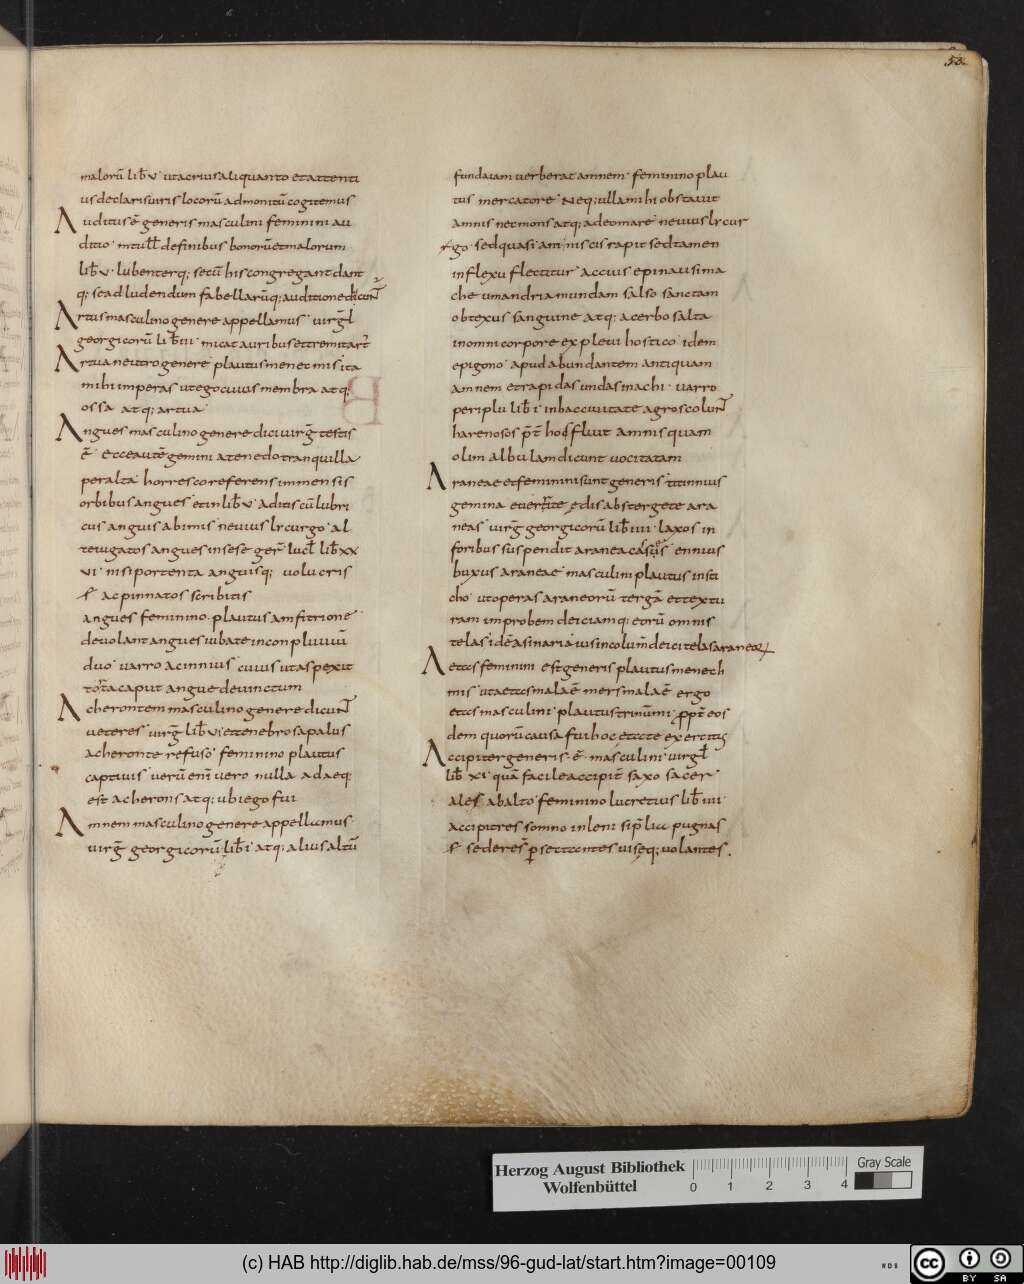 52
malorū lib̄ v· utacriusaliquanto etattenti
usdeclarisuiris locorū admonitū cogitemus
Auditus ē generis masculini feminini au
ditio· mtull̄ definibus bonorūetmalorum
lib̄ v· lubenterq; secū hiscongregantdant
q; seadludendum fabellarūq; auditionedicunt̄
Artusmasculinogenere appellamus· uirgl̄
georgicorū lib̄ iii· micat auribusettremitart̄
Artuaneutrogenere· plautusmenecmis· ita
mihi imperas utegocuius membra atq;
ossa atq; artua·
Angues masculinogenere diciuirḡ testis
ē· ecceautē gemini atenedotranquilla
peralta· horrescoreferens immensis
orbibus angues· etinlib̄ v· aditus cū lubri
cus anguis abimis· neuius lycurgo· al
teiugatos angues insese ger̄· lucl̄ lib̄ xx
vi· nisiportenta anguisq; uolucris
s̄· acpinnatos scribitis
angues feminino· plautus amfitrione·
deuolant angues iubate inconpluuiū
duo· uarro acinnius· cuius utaspexit
tor̄ta caput angue deuinctum
Acherontem masculinogenere dicunt̄
ueteres· uirḡ lib̄ vi· ettenebrosapalus
acheronte refuso· feminino plautus
captiuis· uerū eni uero nulla adaeq;
est acherons atq; ubiego fui
Amnem masculinogenere appellamus·
uirḡ georgicorū lib̄ i· atq; aliusaltū
fundaiam uerberat amnem· feminino plau
tus mercatore· Neq; ulla mihi obstauit
amnis necmons atq; adeomare· neuius lycur
go· sed quasi amniscis rapit sedtamen
inflexu flectitur· accius epinausima
che umandriamundam salso sanctam
obtexus sanguine atq; acerbo salta
inomni corpore expleui hostico· idem
epigono· apud abundantem antiquam
amnem etrapidas undas inachi· uarro
periplu lib̄ i· inbacciuitate agroscolunt̄
harenosos p̄t̄ hoc fluit amnis quam
olim albulamdicunt uocitatam
Araneae etfeminini sunt generis· titinnius
gemina· euerrite edis abstergete ara
neas· uirḡ georgicorū lib̄ iiii· laxos in
foribus suspendit aranea casus· ennius
buxus araneae· masculini plautus insti
cho· utoperas araneorū tergā et textu
ram improbem deiciamq; eorū omnis
telas· idē asinaria· iusincolum deicitelasaraneor̄
Aetas feminini est generis plautus menech
mis· utaetas mala ē mers mala ē ergo
etas masculini· plautus trinūmi· ppt̄ eos
dem quorū causa fui hoc etate exercitus
Accipiter generis ē masculini· uirgl̄
lib̄ xi· quā facile accipit̄ saxo sacer
ales abalto· feminino lucretius lib̄ iiii·
accipitres somno inleni sip̄lia pugnas
s̄· sederes p̄sectantes uiseq; uolantes.
Herzog August Bibliothek
Wolfenbüttel
0 1 2 3 4
Gray Scale
(c) HAB http://diglib.hab.de/mss/96-gud-lat/start.htm?image=00109
WDB
cc BY SA